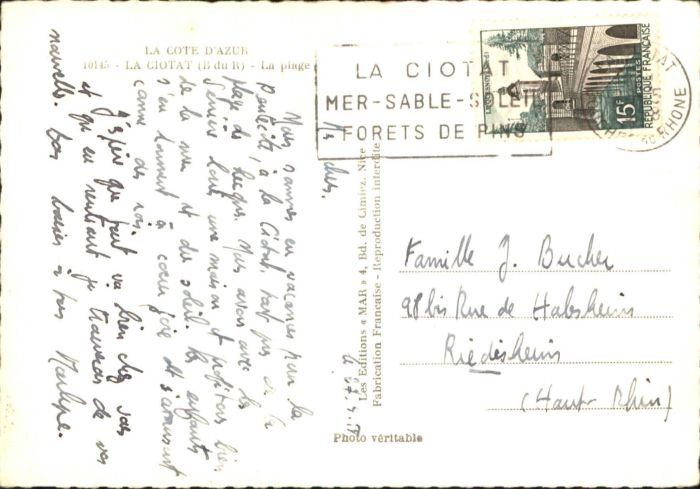 LA COTE D'AZUR
10145 - LA CIOTAT (B du R) - La plage
LA CIOTAT
MER-SABLE-SOLEIL
FORETS DE PINS
RHONE
15F
POSTES
REPUBLIQUE FRANÇAISE
chers,
Nous sommes en vacances pour la
à la Ciotat, tout près de la
plage des Lecques. Nous avons avec les
loué une maison et profitons bien
de la mer et du soleil. Les enfants
s'en donnent à cœur joie et s'amusent
comme des rois.
J'espère que tout va bien chez vous
et qu'en rentrant je trouverai de vos
nouvelles. Bons baisers à tous
Les Editions « MAR » 4, Bd. de Cimiez, Nice
Fabrication Française - Reproduction interdite
Photo véritable
Famille J. Bucher
98 bis Rue de Habsheim
Riedisheim
(Haut Rhin)